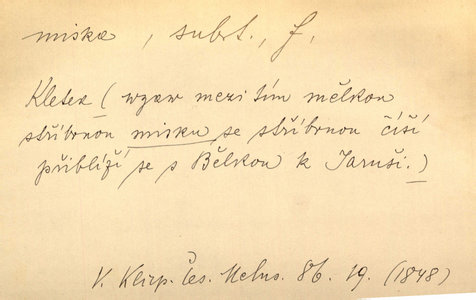 miska, subst., f.
Kletea (wzaw mezi tím mělkou
stříbrnou misku se stříbrnou číší
přiblíží se s Bělkou k Jaruši.)
V. Klicp. Čes. Melus. 86. 19. (1848)